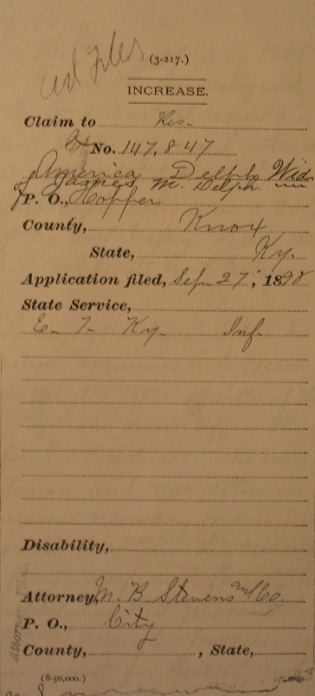 Files (3-217.)
INCREASE.
Claim to Res-
No. 147,847
America Delph Wid
of James M. Delph
P. O., Hopper
County, Knox
State, Ky.
Application filed, Sep. 27, 1898
State Service,
E. 7. Ky Inf.
Disability,
Attorney, M. B Stevens and Co
P. O., City
County, , State,
(8-50,000.)